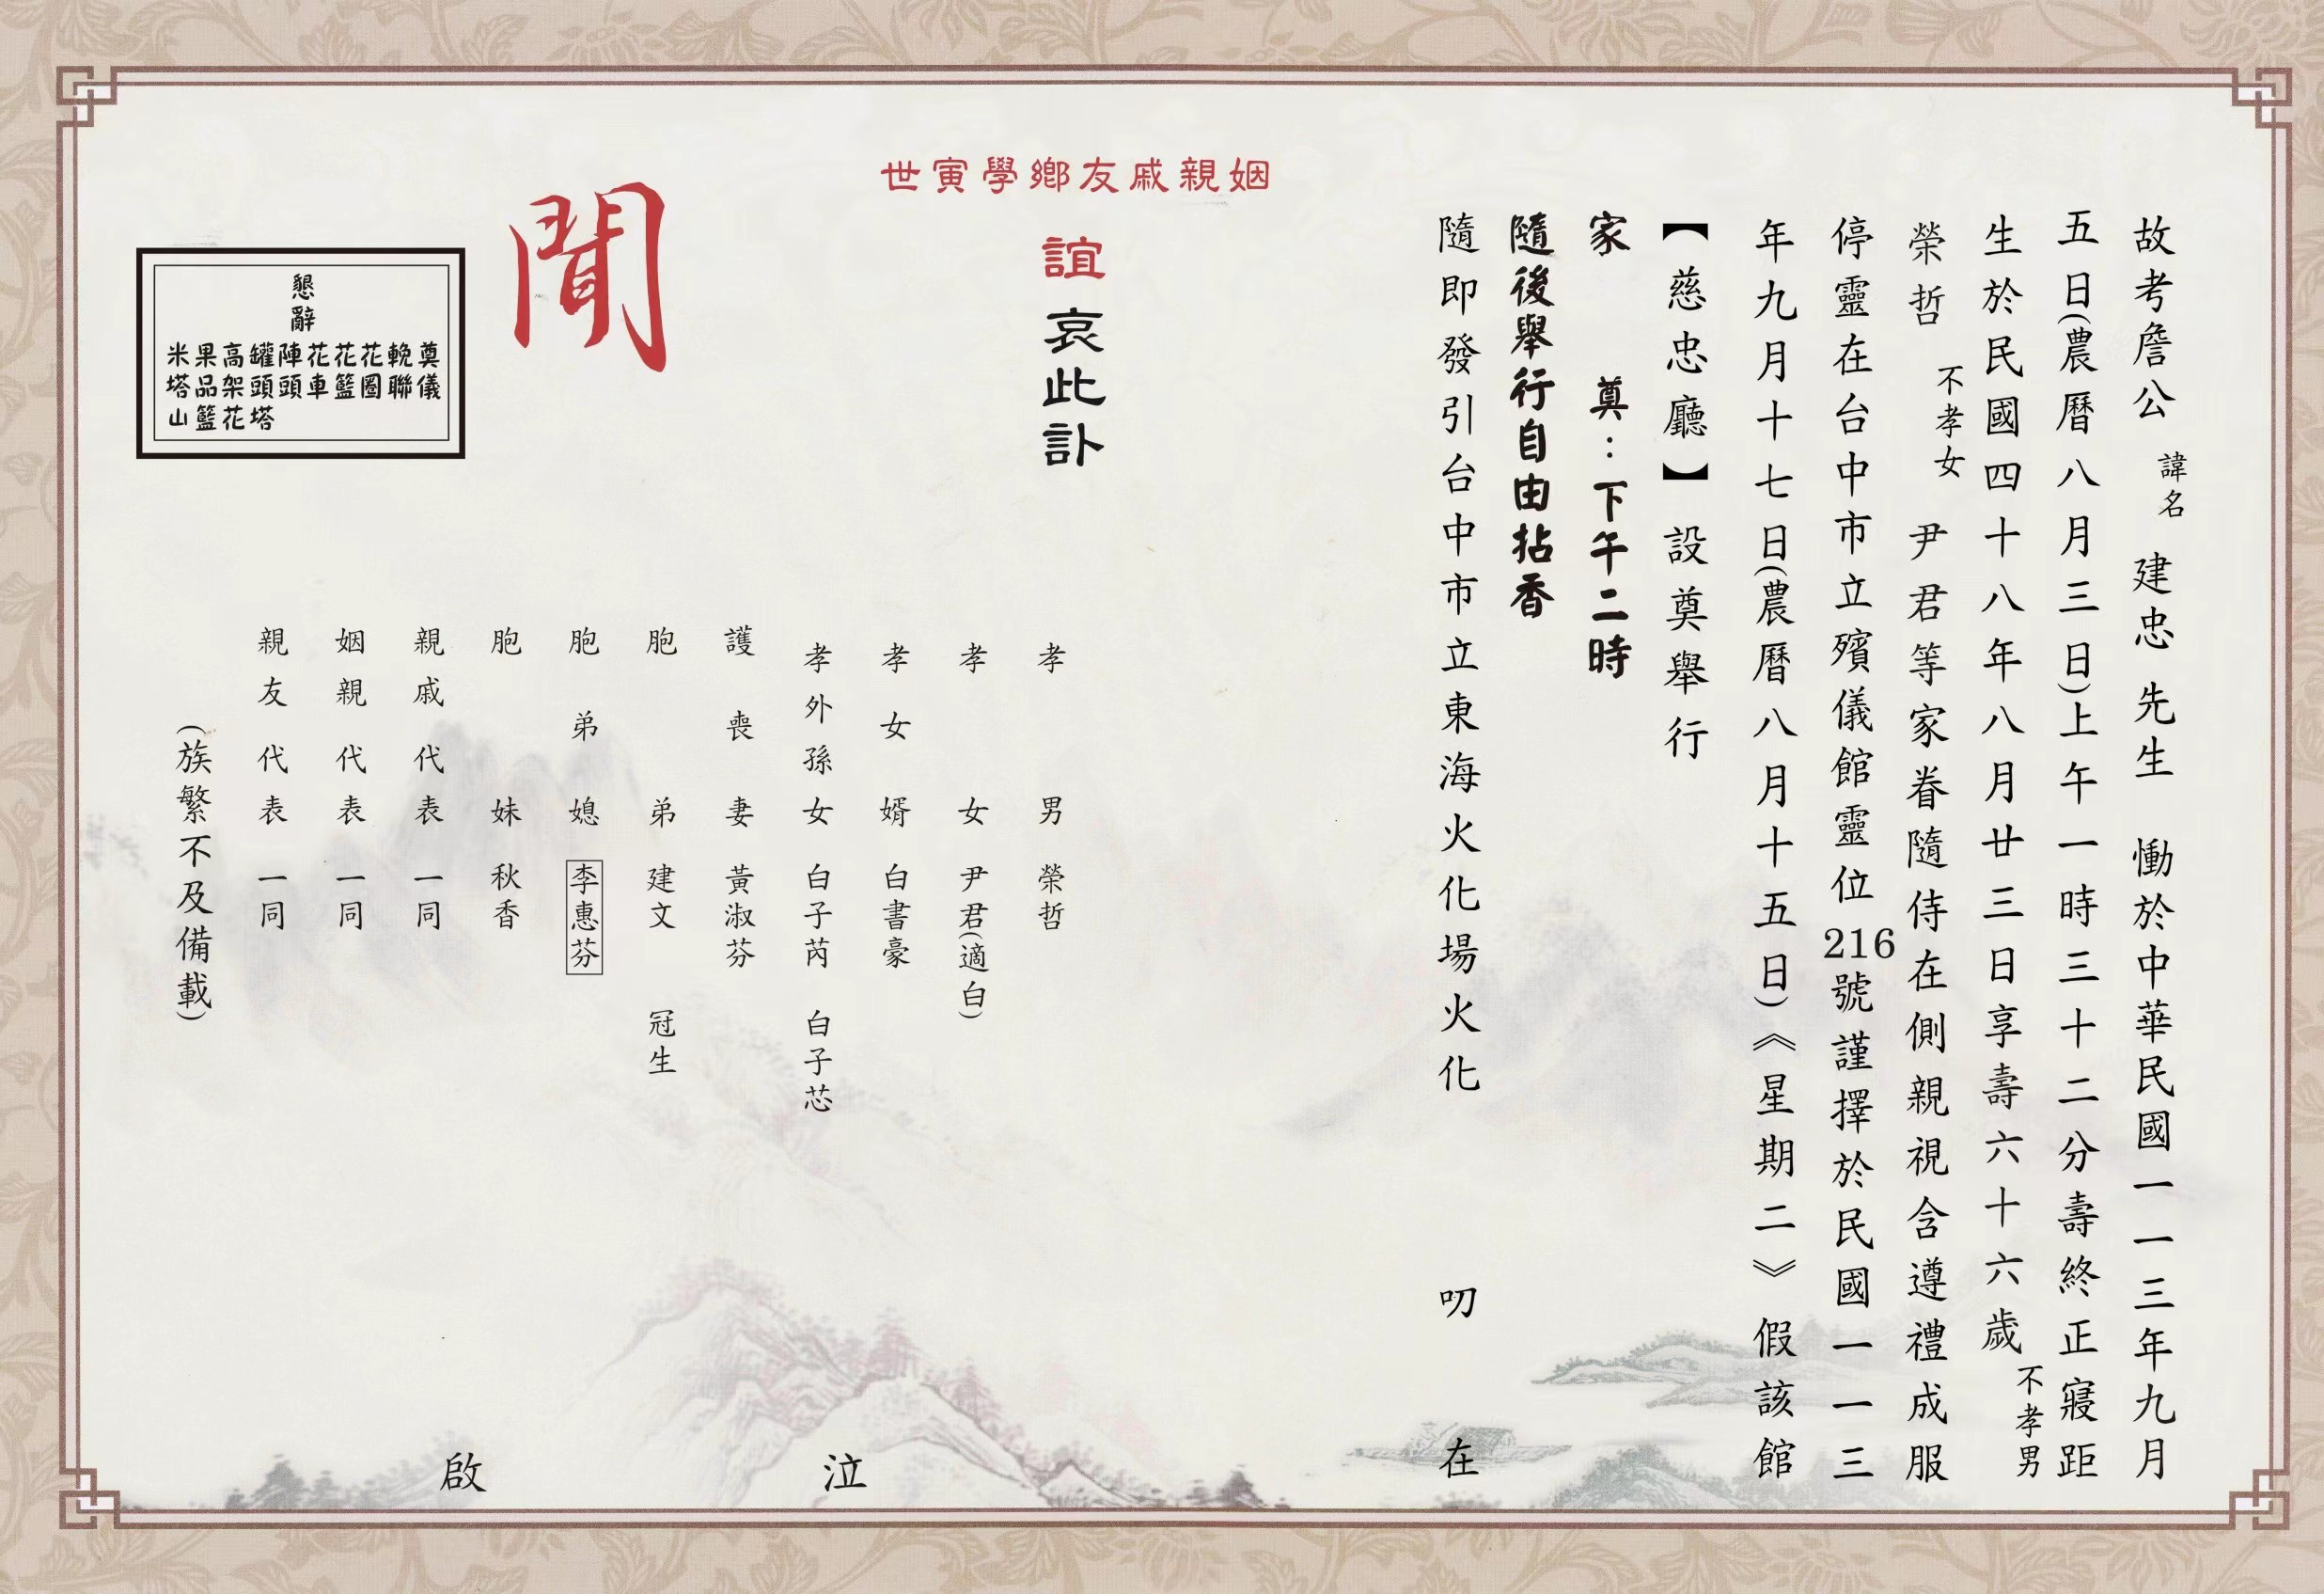 故考詹公 諱名 建忠 先生 慟於中華民國一一三年九月
五日(農曆八月三日)上午一時三十二分壽終正寢距
生於民國四十八年八月廿三日享壽六十六歲 不孝男
榮哲 不孝女 尹君等家眷隨侍在側親視含遵禮成服
停靈在台中市立殯儀館靈位216號謹擇於民國一一三
年九月十七日(農曆八月十五日)《星期二》假該館
【慈忠廳】設奠舉行
家 奠:下午二時
隨後舉行自由拈香
隨即發引台中市立東海火化場火化 叨 在
姻親戚友鄉學寅世
誼哀此訃
聞
孝男 榮哲
孝女 尹君(適白)
孝女婿 白書豪
孝外孫女 白子芮 白子芯
護喪妻 黃淑芬
胞弟 建文 冠生
胞弟媳 李惠芬
胞妹 秋香
親戚代表 一同
姻親代表 一同
親友代表 一同
(族繁不及備載)
泣 啟
懇辭
奠儀
輓聯
花圈
花籃
花車
陣頭
罐頭塔
高架花
果品籃
米塔山